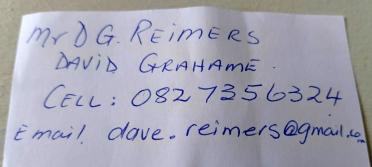 Mr D G. REIMERS
DAVID GRAHAME.
CELL: 0827356324
Email. dave.reimers@gmail.com